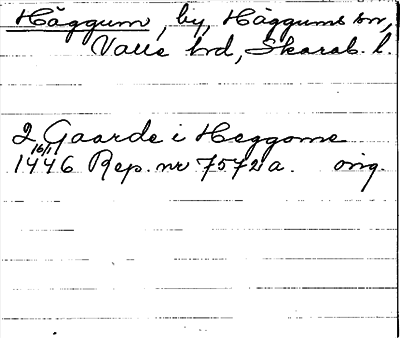 Häggum, by, Häggums sn,
Valle hd, Skarab. l.
2 Gaarde i Heggome
16/1
1446 Rep. nr 7572 a. orig.